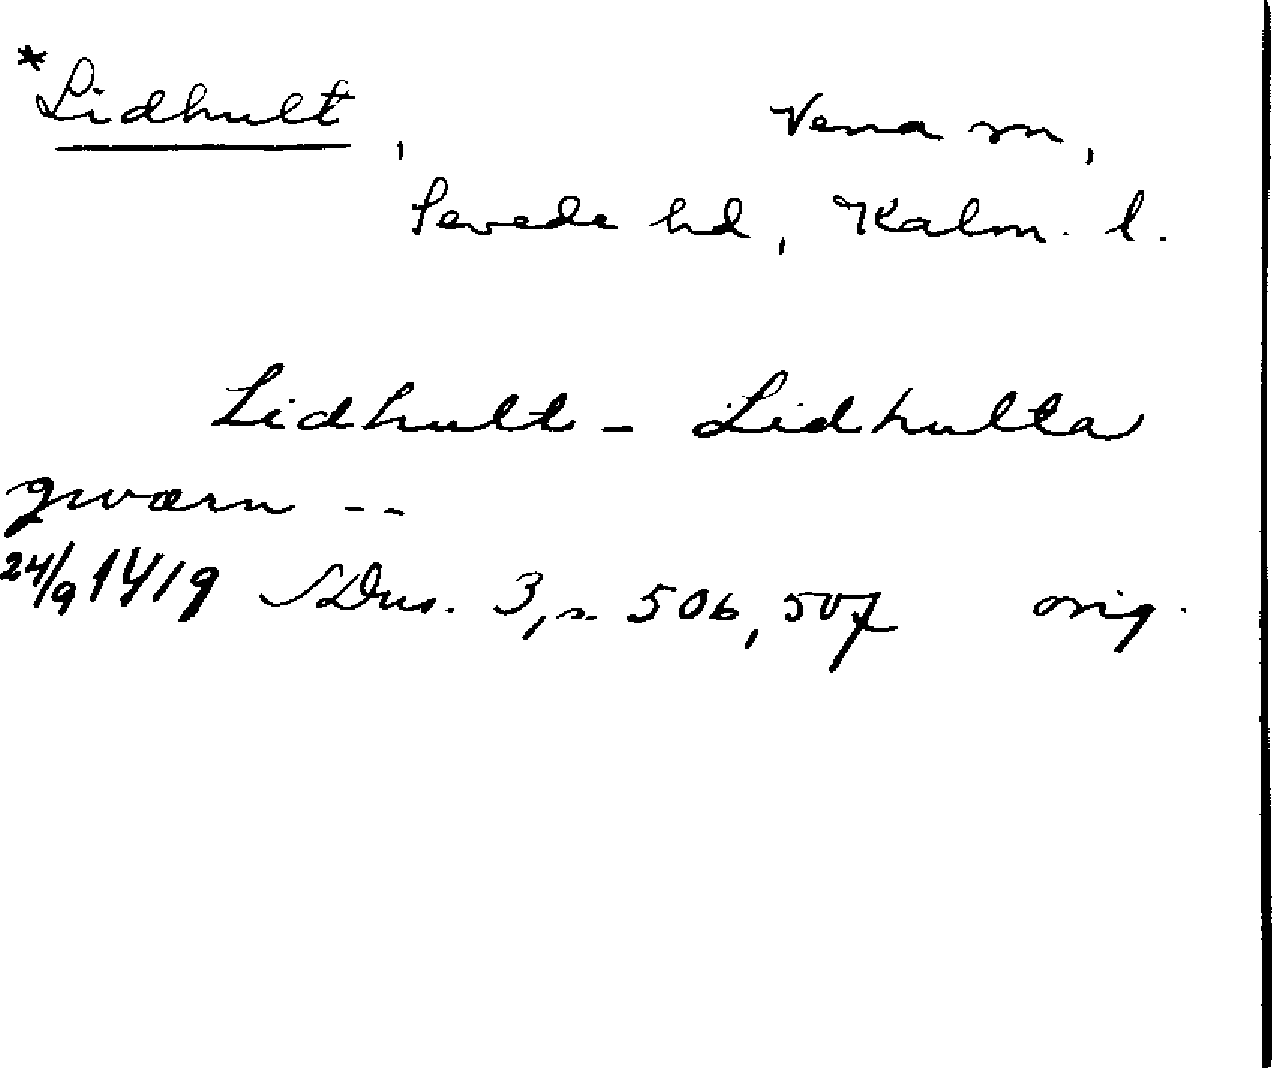 *Lidhult, Vena sn,
Sevede hd, Kalm. l.
Lidhult - Lidhulta
qwærn --
24/9 1419 SDns. 3, s. 506, 507 orig.